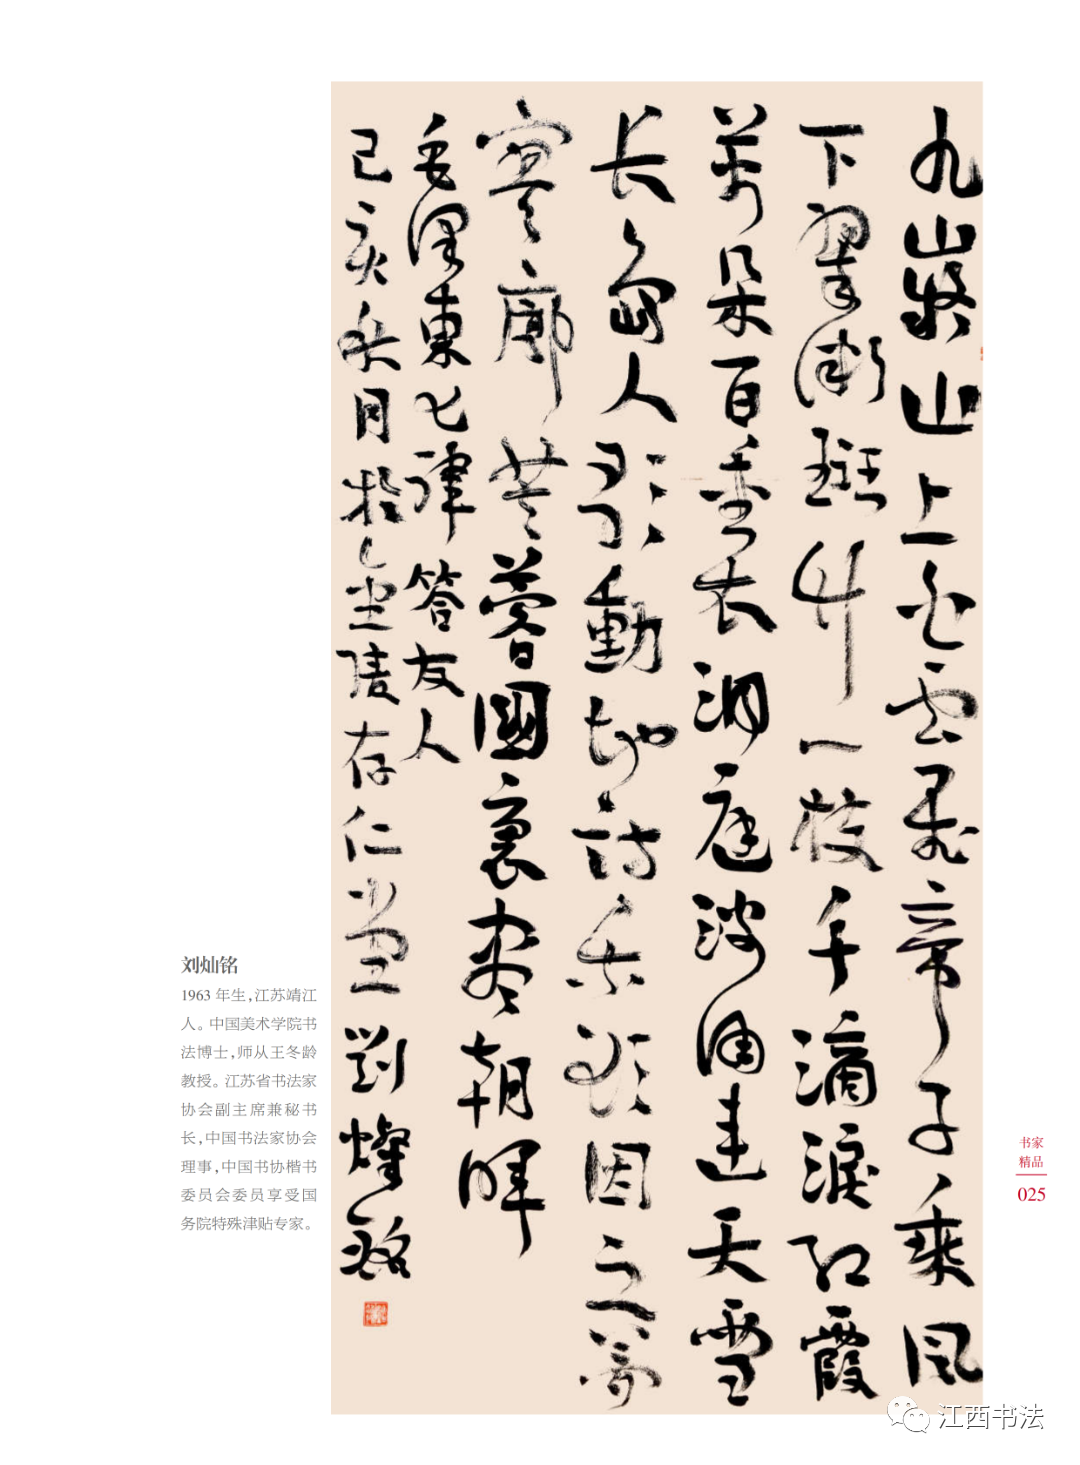 九嶷山上白云飛帝子乘风
下翠微斑竹一枝千滴淚红霞
萬朵百重衣洞庭波涌連天雪
长岛人歌動地詩我欲因之夢
寥廓芙蓉國裏盡朝暉
毛澤東七律答友人
己亥秋月於金陵存仁堂劉燦銘
刘灿铭
1963 年生，江苏靖江
人。中国美术学院书
法博士，师从王冬龄
教授。江苏省书法家
协会副主席兼秘书
长，中国书法家协会
理事，中国书协楷书
委员会委员享受国
务院特殊津贴专家。
书家
精品
025
江西书法